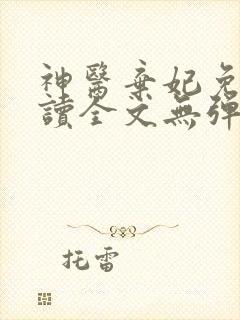 神醫棄妃免
讀全文無彈
托雷